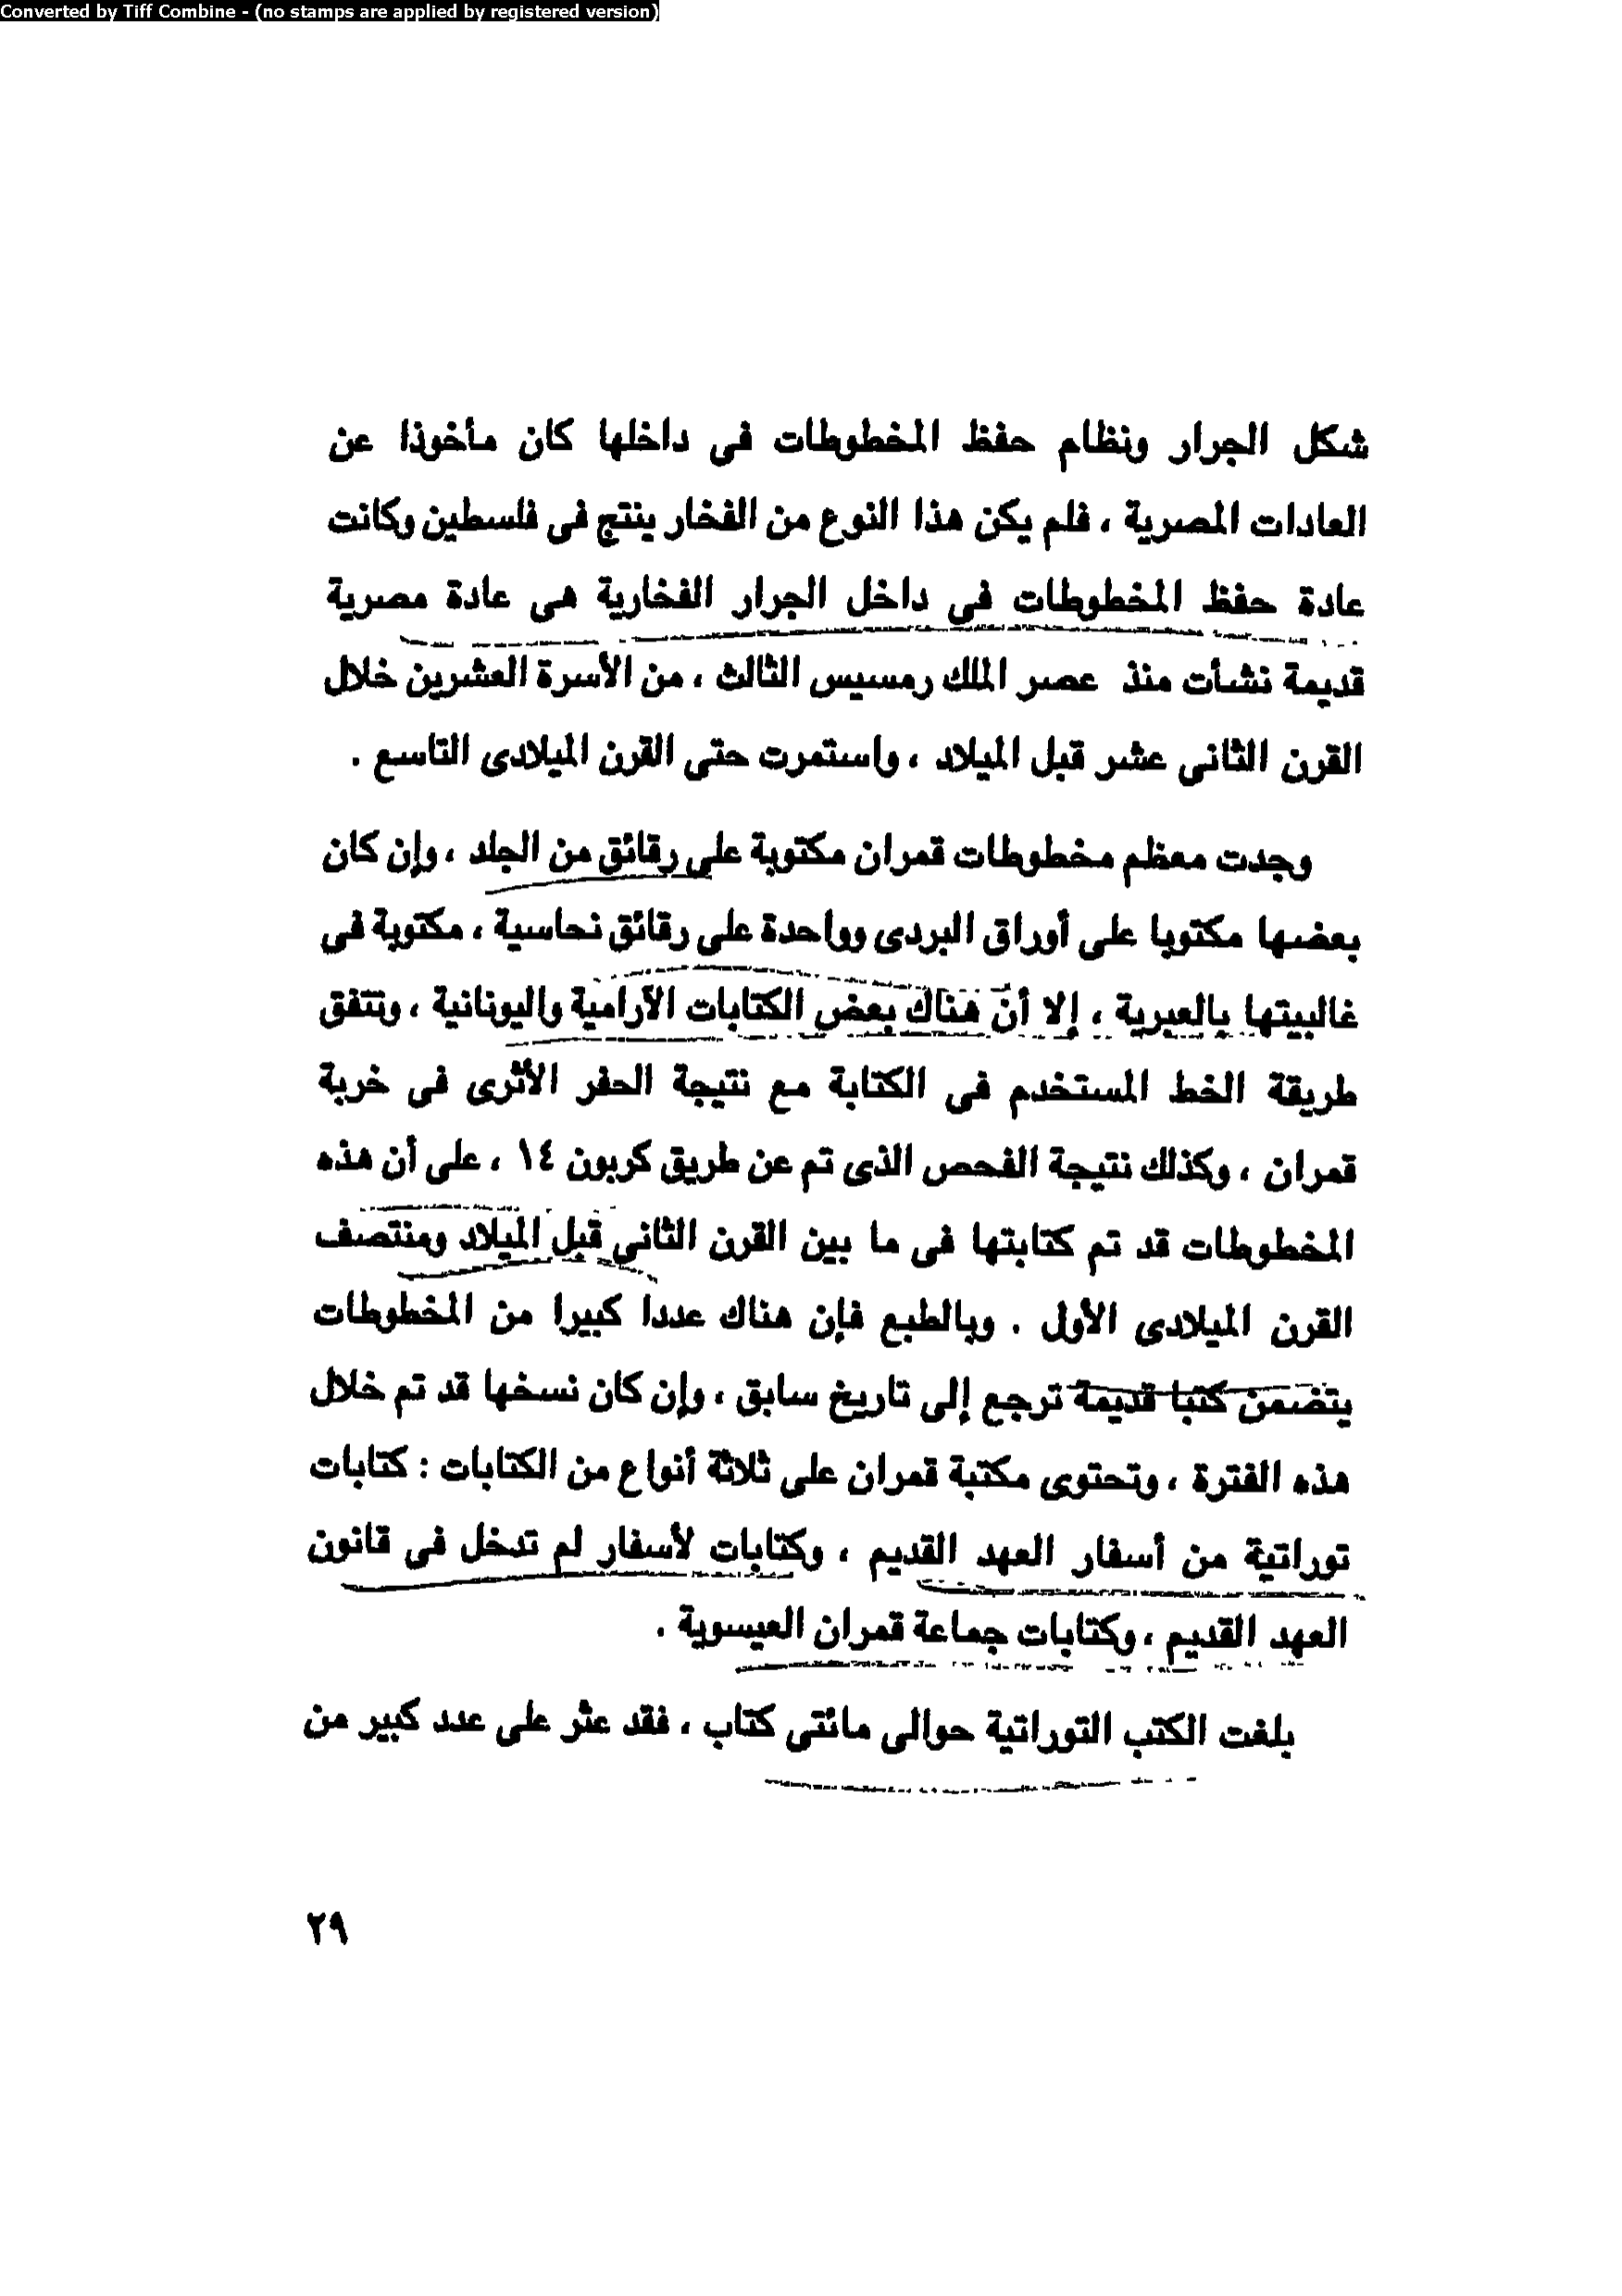 Converted by Tiff Combine - (no stamps are applied by registered version)
شكل الجرار ونظام حفظ المخطوطات فى داخلها كان مأخوذا عن
العادات المصرية ، فلم يكن هذا النوع من الفخار ينتج فى فلسطين وكانت
عادة حفظ المخطوطات فى داخل الجرار الفخارية هى عادة مصرية
قديمة نشأت منذ عصر الملك رمسيس الثالث ، من الأسرة العشرين خلال
القرن الثانى عشر قبل الميلاد ، واستمرت حتى القرن الميلادى التاسع .
وجدت معظم مخطوطات قمران مكتوبة على رقائق من الجلد ، وإن كان
بعضها مكتوبا على أوراق البردى وواحدة على رقائق نحاسية ، مكتوبة فى
غالبيتها بالعبرية ، إلا أن هناك بعض الكتابات الآرامية واليونانية ، وتتفق
طريقة الخط المستخدم فى الكتابة مع نتيجة الحفر الأثرى فى خربة
قمران ، وكذلك نتيجة الفحص الذى تم عن طريق كربون ١٤ ، على أن هذه
المخطوطات قد تم كتابتها فى ما بين القرن الثانى قبل الميلاد ومنتصف
القرن الميلادى الأول . وبالطبع فإن هناك عددا كبيرا من المخطوطات
يتضمن كتبا قديمة ترجع إلى تاريخ سابق ، وإن كان نسخها قد تم خلال
هذه الفترة ، وتحتوى مكتبة قمران على ثلاثة أنواع من الكتابات : كتابات
توراتية من أسفار العهد القديم ، وكتابات لأسفار لم تدخل فى قانون
العهد القديم ، وكتابات جماعة قمران العيسوية .
بلغت الكتب التوراتية حوالى مائتى كتاب ، فقد عثر على عدد كبير من
٢٩